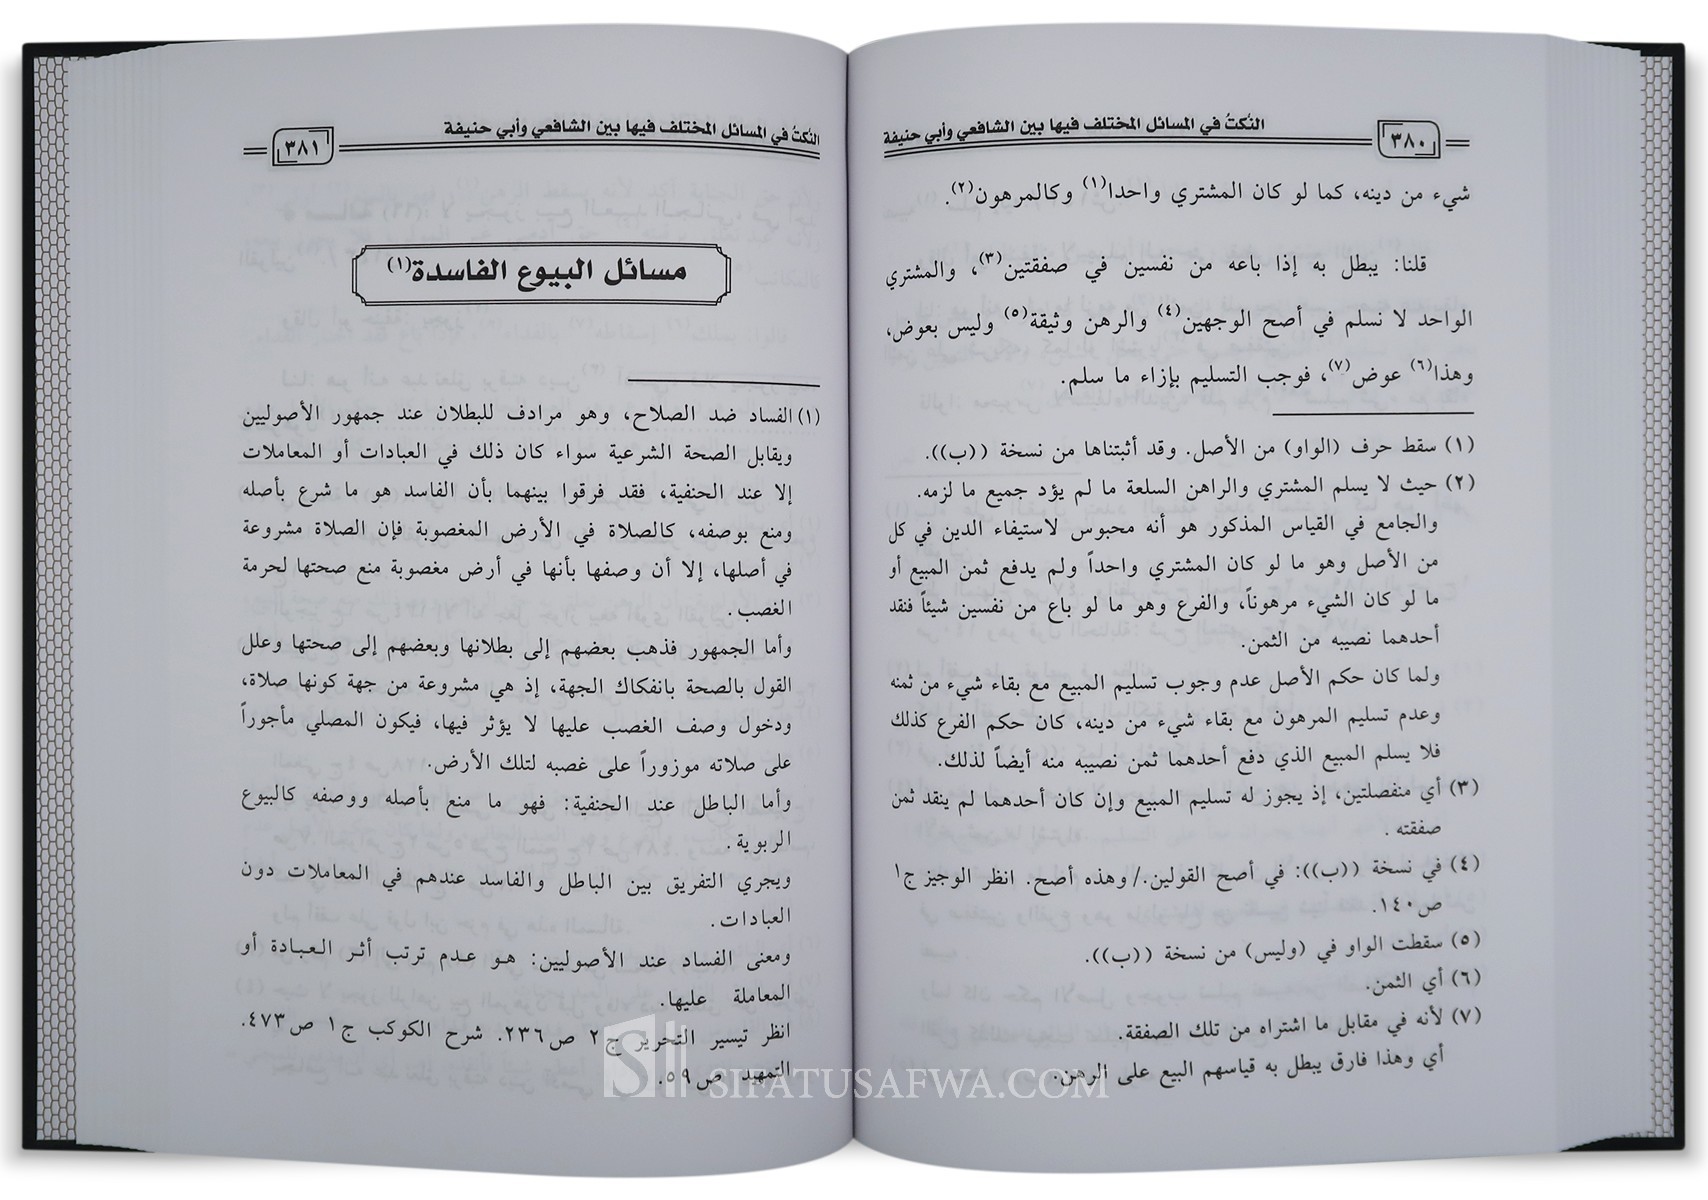 النُكتُ في المسائل المختلف فيها بين الشافعي وأبي حنيفة
٣٨٠
شيء من دينه، كما لو كان المشتري واحدا(١) وكالمرهون(٢).
قلنا: يبطل به إذا باعه من نفسين في صفقتين(٣)، والمشتري
الواحد لا نسلم في أصح الوجهين(٤) والرهن وثيقة(٥) وليس بعوض،
وهذا(٦) عوض(٧)، فوجب التسليم بإزاء ما سلم.
(١) سقط حرف (الواو) من الأصل. وقد أثبتناها من نسخة ((ب)).
(٢) حيث لا يسلم المشتري والراهن السلعة ما لم يؤد جميع ما لزمه.
والجامع في القياس المذكور هو أنه محبوس لاستيفاء الدين في كل
من الأصل وهو ما لو كان المشتري واحداً ولم يدفع ثمن المبيع أو
ما لو كان الشيء مرهوناً، والفرع وهو ما لو باع من نفسين شيئاً فنقد
أحدهما نصيبه من الثمن.
ولما كان حكم الأصل عدم وجوب تسليم المبيع مع بقاء شيء من ثمنه
وعدم تسليم المرهون مع بقاء شيء من دينه، كان حكم الفرع كذلك
فلا يسلم المبيع الذي دفع أحدهما ثمن نصيبه منه أيضاً لذلك.
(٣) أي منفصلتين، إذ يجوز له تسليم المبيع وإن كان أحدهما لم ينقد ثمن
صفقته .
(٤) في نسخة ((ب)): في أصح القولين./ وهذه أصح. انظر الوجيز ج١
ص١٤٠.
(٥) سقطت الواو في (وليس) من نسخة ((ب)).
(٦) أي الثمن.
(٧) لأنه في مقابل ما اشتراه من تلك الصفقة.
أي وهذا فارق يبطل به قياسهم البيع على الرهن.
النُكتُ في المسائل المختلف فيها بين الشافعي وأبي حنيفة
٣٨١
مسائل البيوع الفاسدة(١)
(١) الفساد ضد الصلاح، وهو مرادف للبطلان عند جمهور الأصوليين
ويقابل الصحة الشرعية سواء كان ذلك في العبادات أو المعاملات
إلا عند الحنفية، فقد فرقوا بينهما بأن الفاسد هو ما شرع بأصله
ومنع بوصفه، كالصلاة في الأرض المغصوبة فإن الصلاة مشروعة
في أصلها، إلا أن وصفها بأنها في أرض مغصوبة منع صحتها لحرمة
الغصب.
وأما الجمهور فذهب بعضهم إلى بطلانها وبعضهم إلى صحتها وعلل
القول بالصحة بانفكاك الجهة، إذ هي مشروعة من جهة كونها صلاة،
ودخول وصف الغصب عليها لا يؤثر فيها، فيكون المصلي مأجوراً
على صلاته موزوراً على غصبه لتلك الأرض.
وأما الباطل عند الحنفية: فهو ما منع بأصله ووصفه كالبيوع
الربوية .
ويجري التفريق بين الباطل والفاسد عندهم في المعاملات دون
العبادات .
ومعنى الفساد عند الأصوليين: هو عدم ترتب أثر العبادة أو
المعاملة عليها.
انظر تيسير التحرير ج٢ ص٢٣٦. شرح الكوكب ج١ ص٤٧٣.
التمهيد ص٥٩.
SIFATUSAFWA.COM